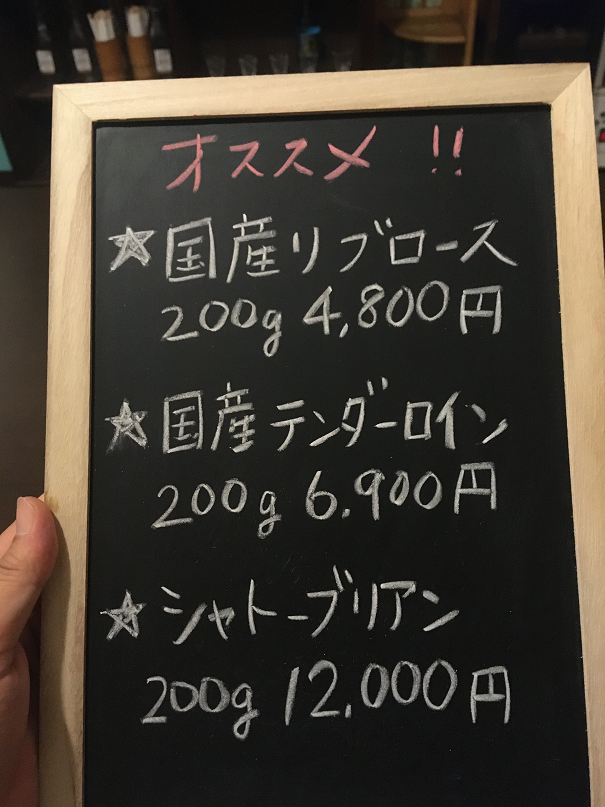 オススメ !!
☆国産リブロース
200g 4,800円
☆国産テンダーロイン
200g 6.900円
☆シャトーブリアン
200g 12.000円